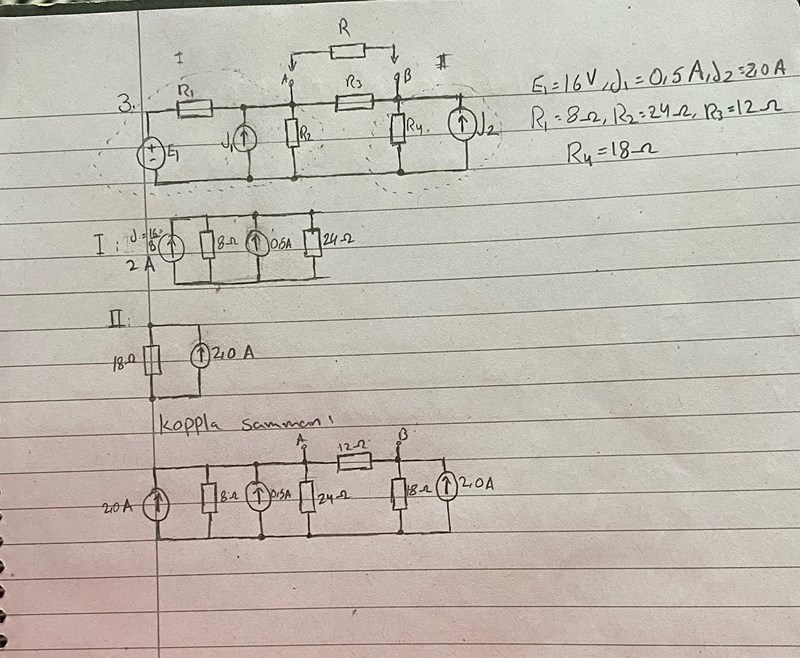 R
I
II
A
B
R₁
R₃
E₁=16V, J₁=0,5A, J₂=2,0A
3.
E₁
J₁
R₂
R₄
J₂
R₁=8Ω, R₂=24Ω, R₃=12Ω
R₄=18Ω
I: J=16/8
2A
8Ω
0,5A
24Ω
II:
18Ω
2,0A
koppla samman:
A
12Ω
B
2,0A
8Ω
0,5A
24Ω
18Ω
2,0A